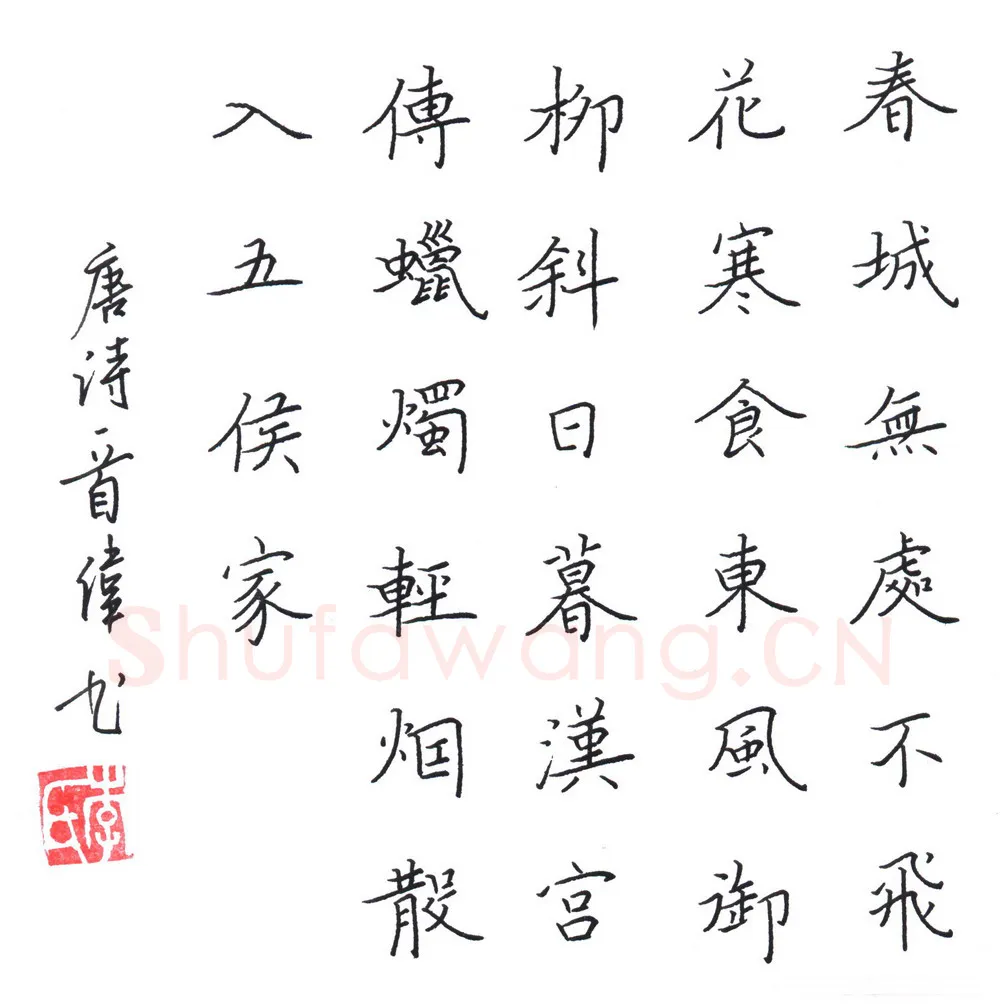 春城無處不飛
花寒食東風御
柳斜日暮漢宮
傳蠟燭輕烟散
入五侯家
唐詩一首偉书
李氏
Shufawang.CN